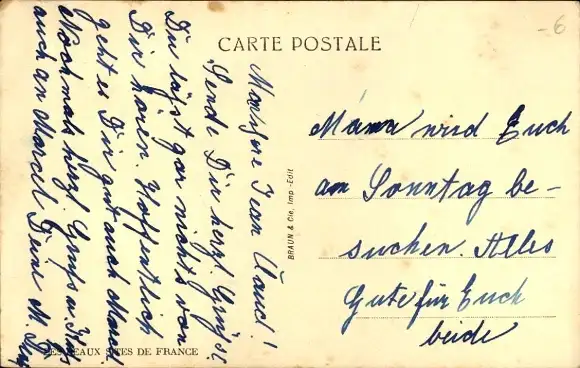 -6
CARTE POSTALE
Jean Claud!
Sende Dir herzl. Grüsse.
Du läßt gar nichts von
Dir hören. Hoffentlich
geht es Dir gut auch Marcel
Nochmals herzl. Gruss u. Kuss
auch an Marcel Deine M.
BRAUN & Cie, Imp.-Edit
Mama wird Euch
am Sonntag be-
suchen. Alles
Gute für Euch
beide
LES BEAUX SITES DE FRANCE